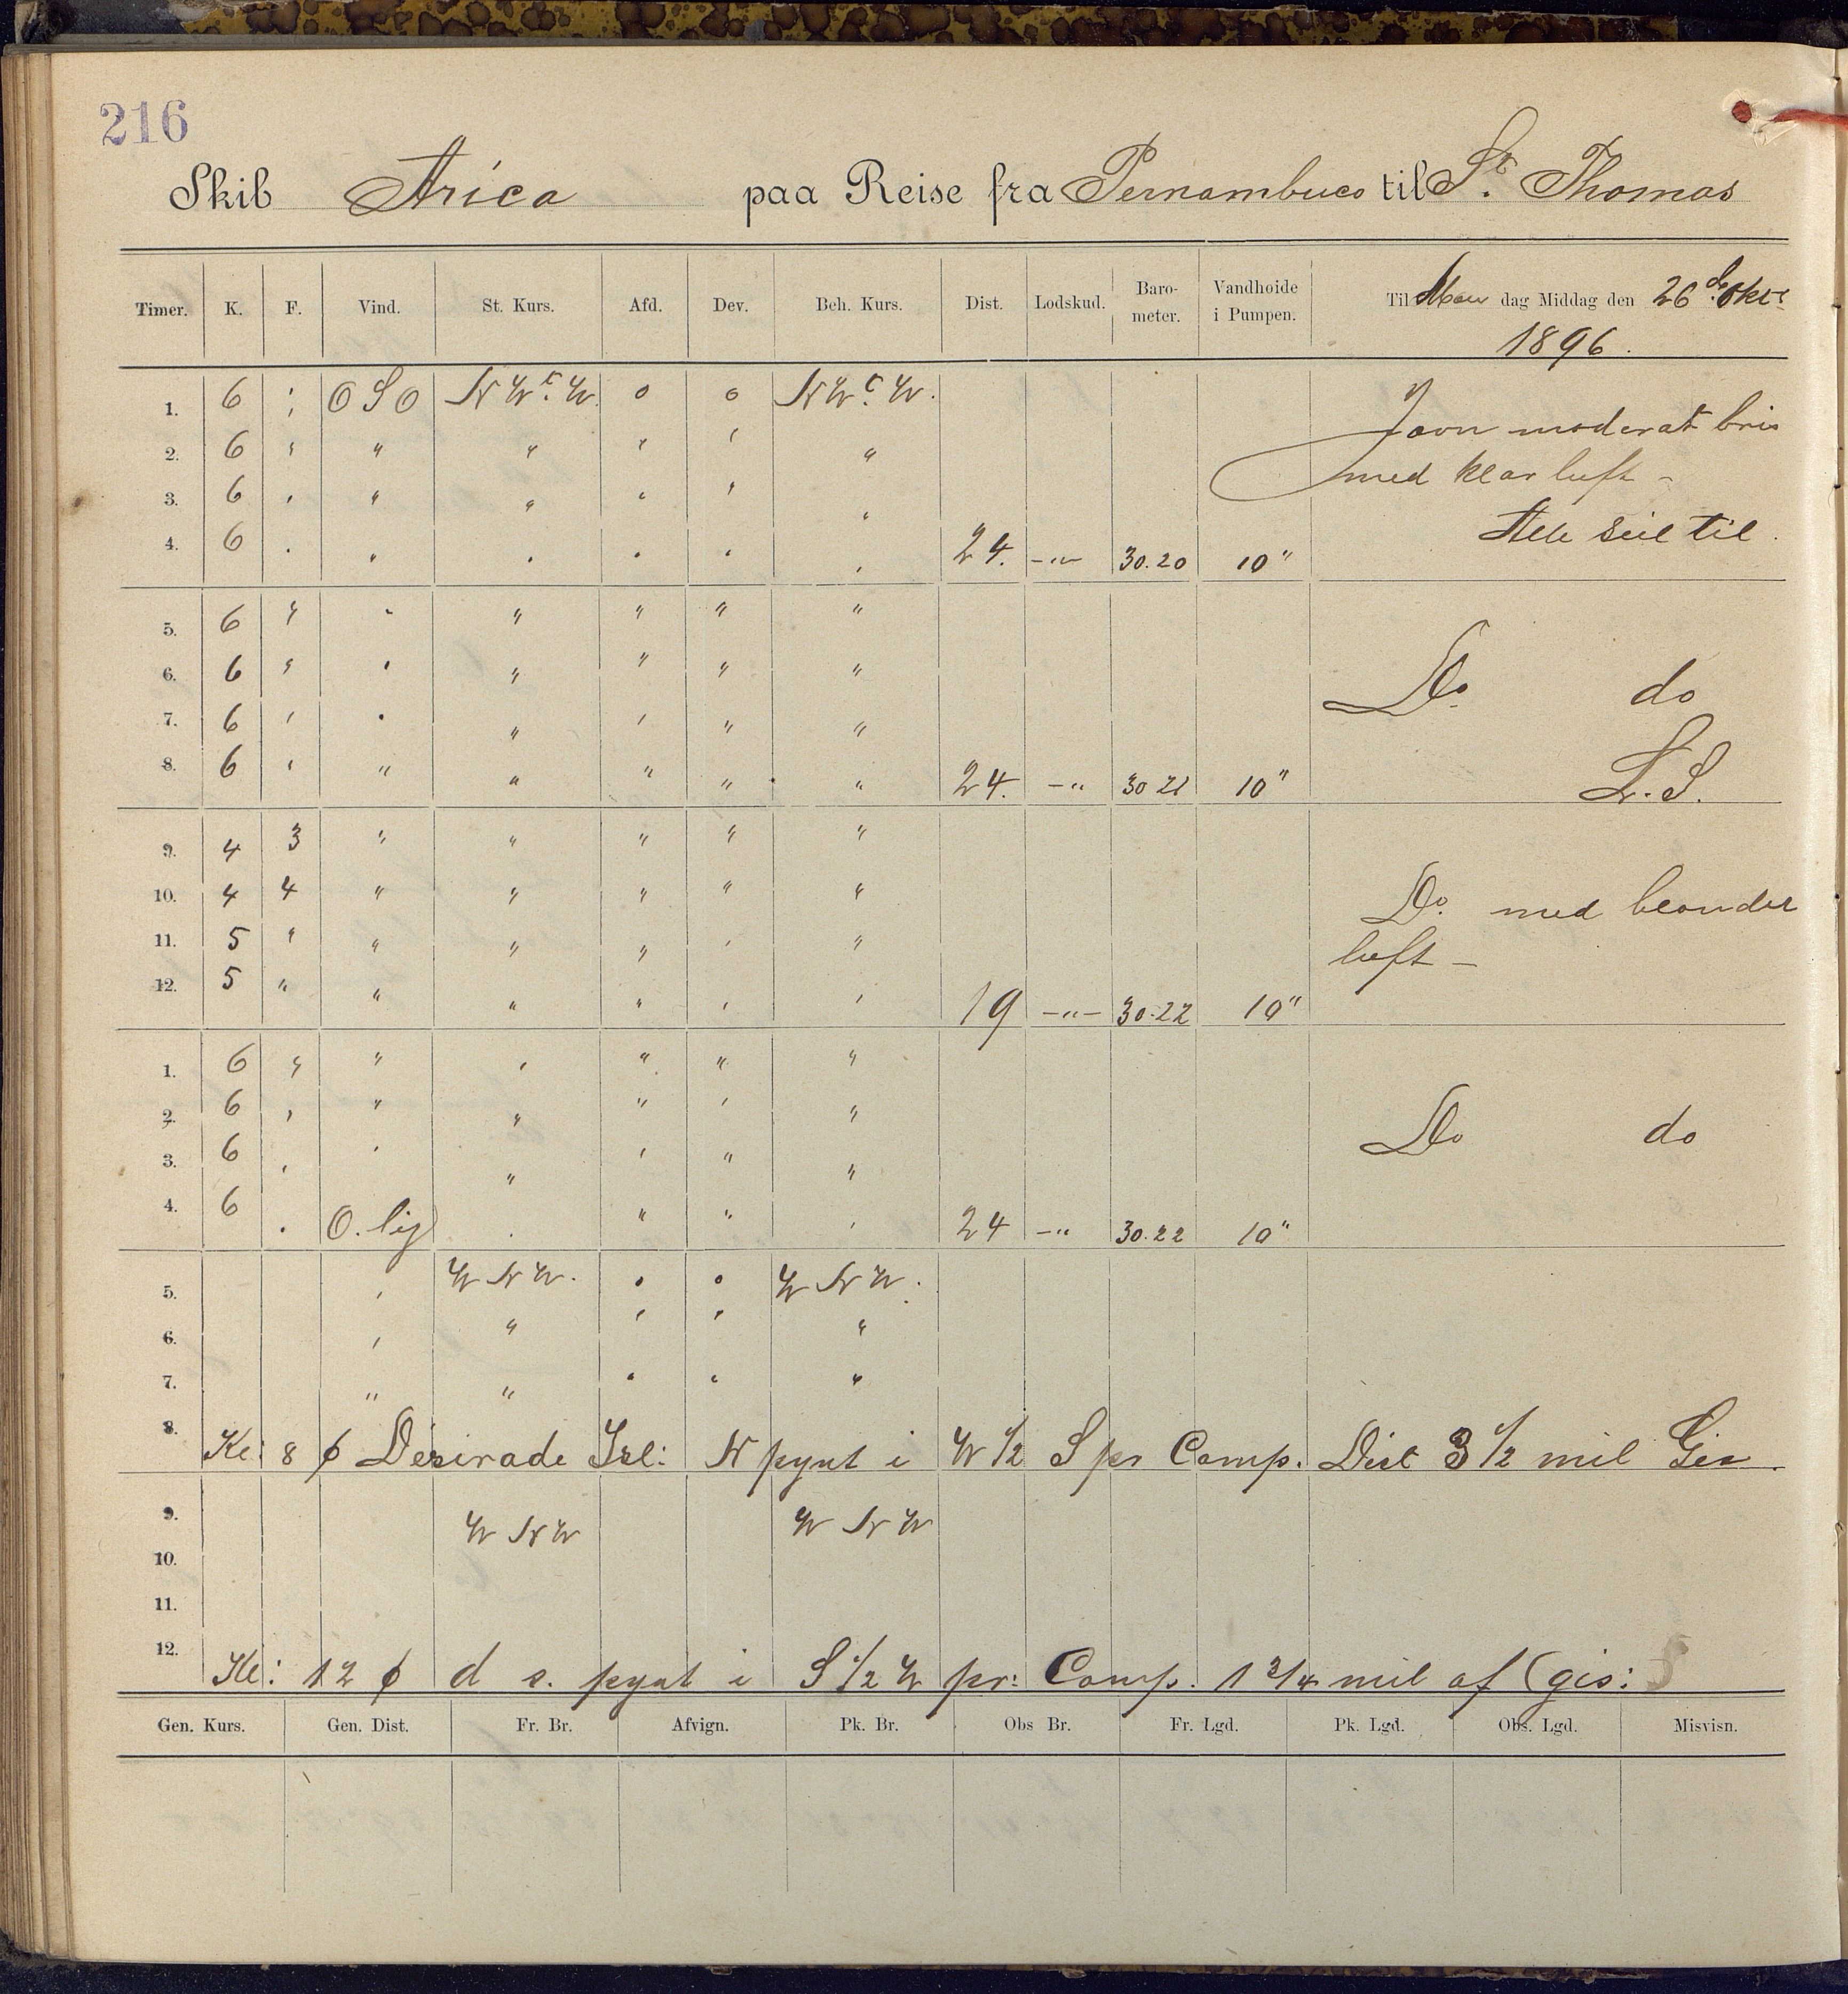 216
Skib Arica paa Reise fra Pernambuco til St. Thomas
Timer. K. F. Vind. St. Kurs. Afd. Dev. Beh. Kurs. Dist. Lodskud. Baro-meter. Vandhoide i Pumpen. Til Man dag Middag den 26de Oktr 1896.
1. 6 " OSO NWtW. o o NWtW. Jevn moderat bris
2. 6 " " " " " " med klar luft -
3. 6 " " " " " "
4. 6 " " " " " " 24. -"- 30.20 10" Alle seil til.
5. 6 " " " " " "
6. 6 " " " " " " Do do
7. 6 " " " " " "
8. 6 " " " " " " 24. -" 30 21 10" L.S.
9. 4 3 " " " " "
10. 4 4 " " " " " Do. med blandet
11. 5 " " " " " " luft -
12. 5 " " " " " " 19 -"- 30.22 10"
1. 6 " " " " " "
2. 6 " " " " " " Do do
3. 6 " " " " " "
4. 6 " O.lig " " " " 24 -" 30.22 10"
5. " WNW. o o WNW.
6. " " " " "
7. " " " " "
8. Kl: 8 f Desirade Isl: N pynt i W 1/2 S pr Comp. Dist 3 1/2 mil Gis.
9. WNW WNW
10.
11.
12. Kl: 12 f d s. pynt i S 1/2 W pr: Comp. 1 3/4 mil af (gis:
Gen. Kurs. Gen. Dist. Fr. Br. Afvign. Pk. Br. Obs Br. Fr. Lgd. Pk. Lgd. Obs. Lgd. Misvisn.